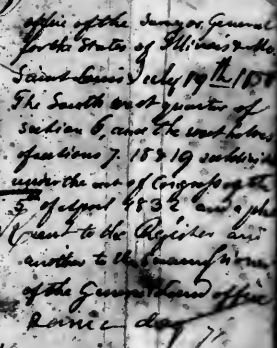 office of the Surveyor General
for the States of Illinois & Mo
Saint Louis July 19th 185
The South west quarter of
section 6, and the west halves
of sections 7. 18 & 19 subdivid
under the act of Congress of the
5th of April 1832 and a pla
sent to the Register and
another to the Commissioner
of the General Land office
same day